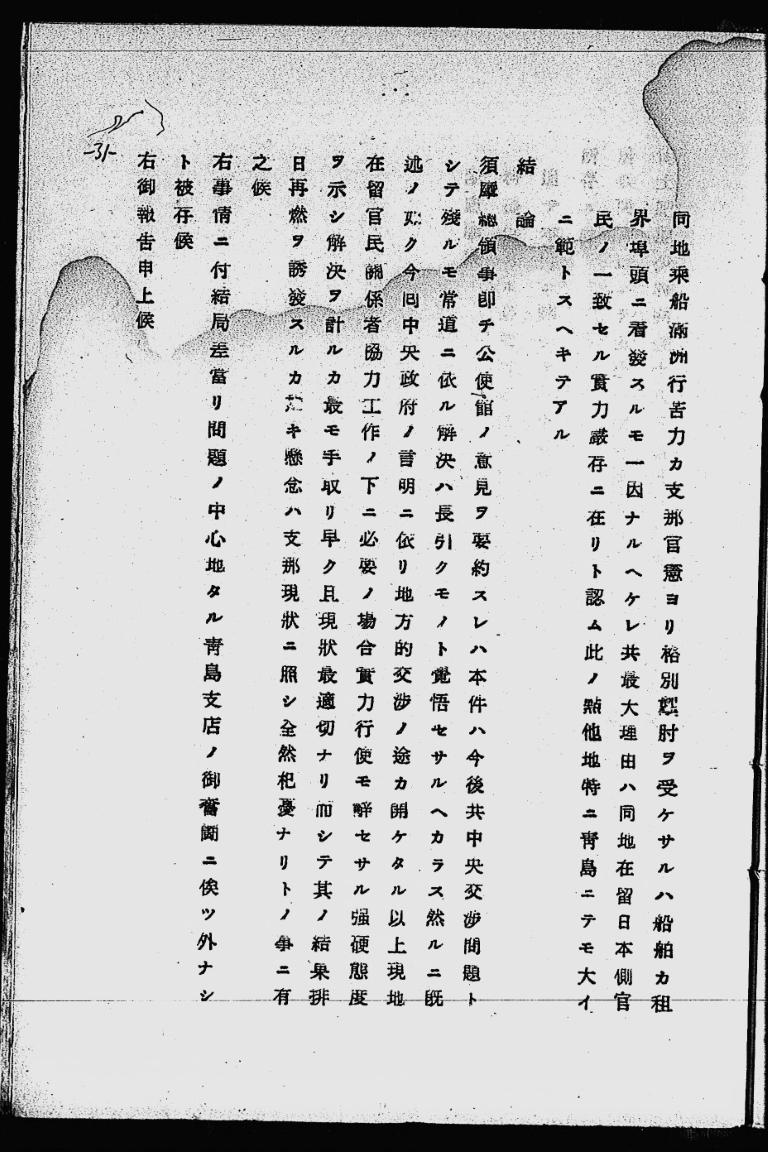 同地乘船滿洲行苦力カ支那官憲ヨリ格別掣肘ヲ受ケサルハ船舶カ租
界埠頭ニ着發スルモ一因ナルヘケレ共最大理由ハ同地在留日本側官
民ノ一致セル實力嚴存ニ在リト認ム此ノ點他地特ニ靑島ニテモ大イ
ニ範トスヘキテアル
結論
須磨總領事卽チ公使館ノ意見ヲ要約スレハ本件ハ今後共中央交涉問題ト
シテ殘ルモ常道ニ依ル解決ハ長引クモノト覺悟セサルヘカラス然ルニ旣
述ノク今回中央政府ノ言明ニ依リ地方的交涉ノ途カ開ケタル以上現地
在留官民關係者協力工作ノ下ニ必要ノ場合實力行使モ辭セサル强硬態度
ヲ示シ解決ヲ計ルカ最モ手取リ早ク且現狀最適切ナリ而シテ其ノ結果排
日再燃ヲ誘發スルカキ懸念ハ支那現狀ニ照シ全然杞憂ナリトノ事ニ有
之候
右事情ニ付結局差當リ問題ノ中心地タル靑島支店ノ御奮鬪ニ俟ツ外ナシ
ト被存候
右御報告申上候
-31-